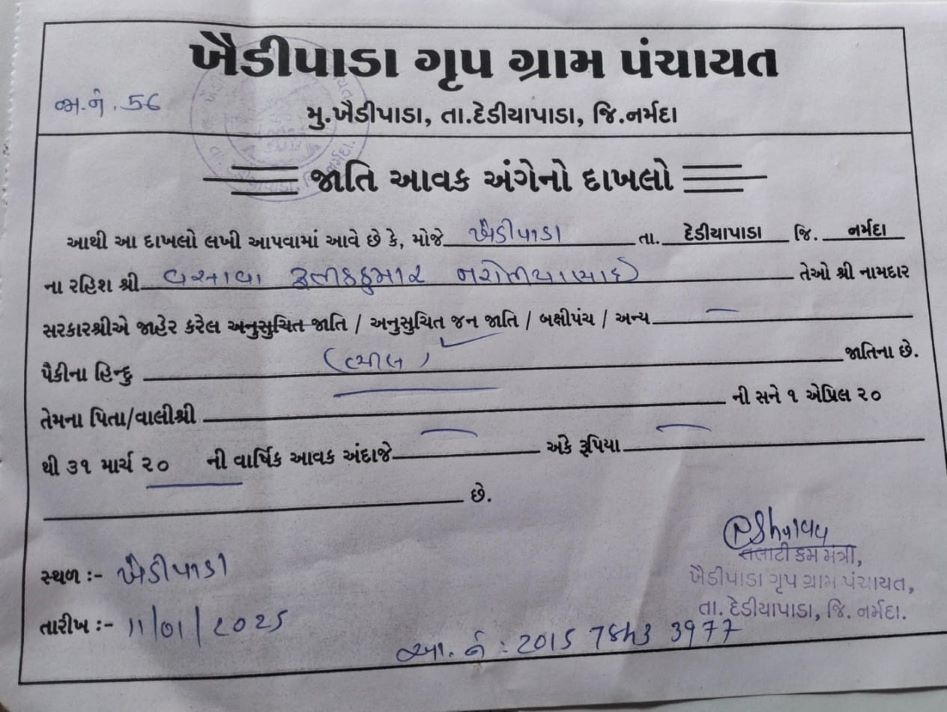 ખૈડીપાડા ગૃપ ગ્રામ પંચાયત
જા.નં. 56
મુ.ખૈડીપાડા, તા.દેડીયાપાડા, જિ.નર્મદા
જાતિ આવક અંગેનો દાખલો
આથી આ દાખલો લખી આપવામાં આવે છે કે, મોજે ખૈડીપાડા તા. દેડીયાપાડા જિ. નર્મદા
ના રહિશ શ્રી વસાવા તેઓ શ્રી નામદાર
સરકારશ્રીએ જાહેર કરેલ અનુસુચિત જાતિ / અનુસુચિત જન જાતિ / બક્ષીપંચ / અન્ય
પૈકીના હિન્દુ જાતિના છે.
તેમના પિતા/વાલીશ્રી ની સને ૧ એપ્રિલ ૨૦
થી ૩૧ માર્ચ ૨૦ ની વાર્ષિક આવક અંદાજે અંકે રૂપિયા
છે.
સ્થળ :- ખૈડીપાડા
તલાટી કમ મંત્રી,
ખૈડીપાડા ગૃપ ગ્રામ પંચાયત,
તા. દેડીયાપાડા, જિ. નર્મદા.
તારીખ :- 11/01/2025
આ. નં : 2015 7843 3977